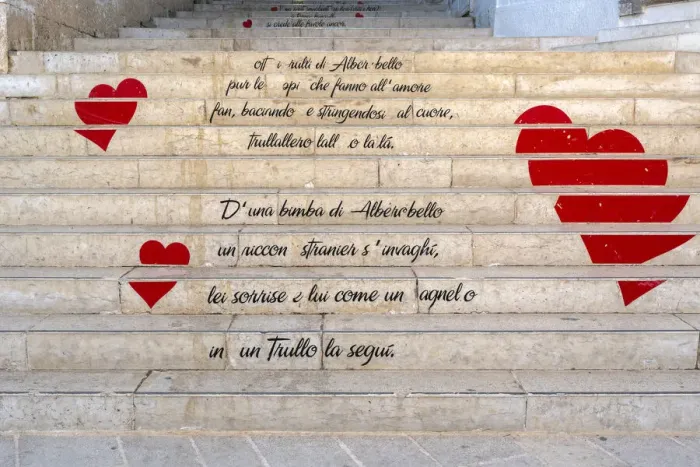 si crede alle favole ancor.
di Alber bello
pur le che fanno all'amore
fan, baciando e stringendosi al cuore,
trullallero lall o la'lá.
D'una bimba di Alberobello
un riccon stranier s'invaghí,
lei sorrise e lui come un agnel o
in un Trullo la seguí.